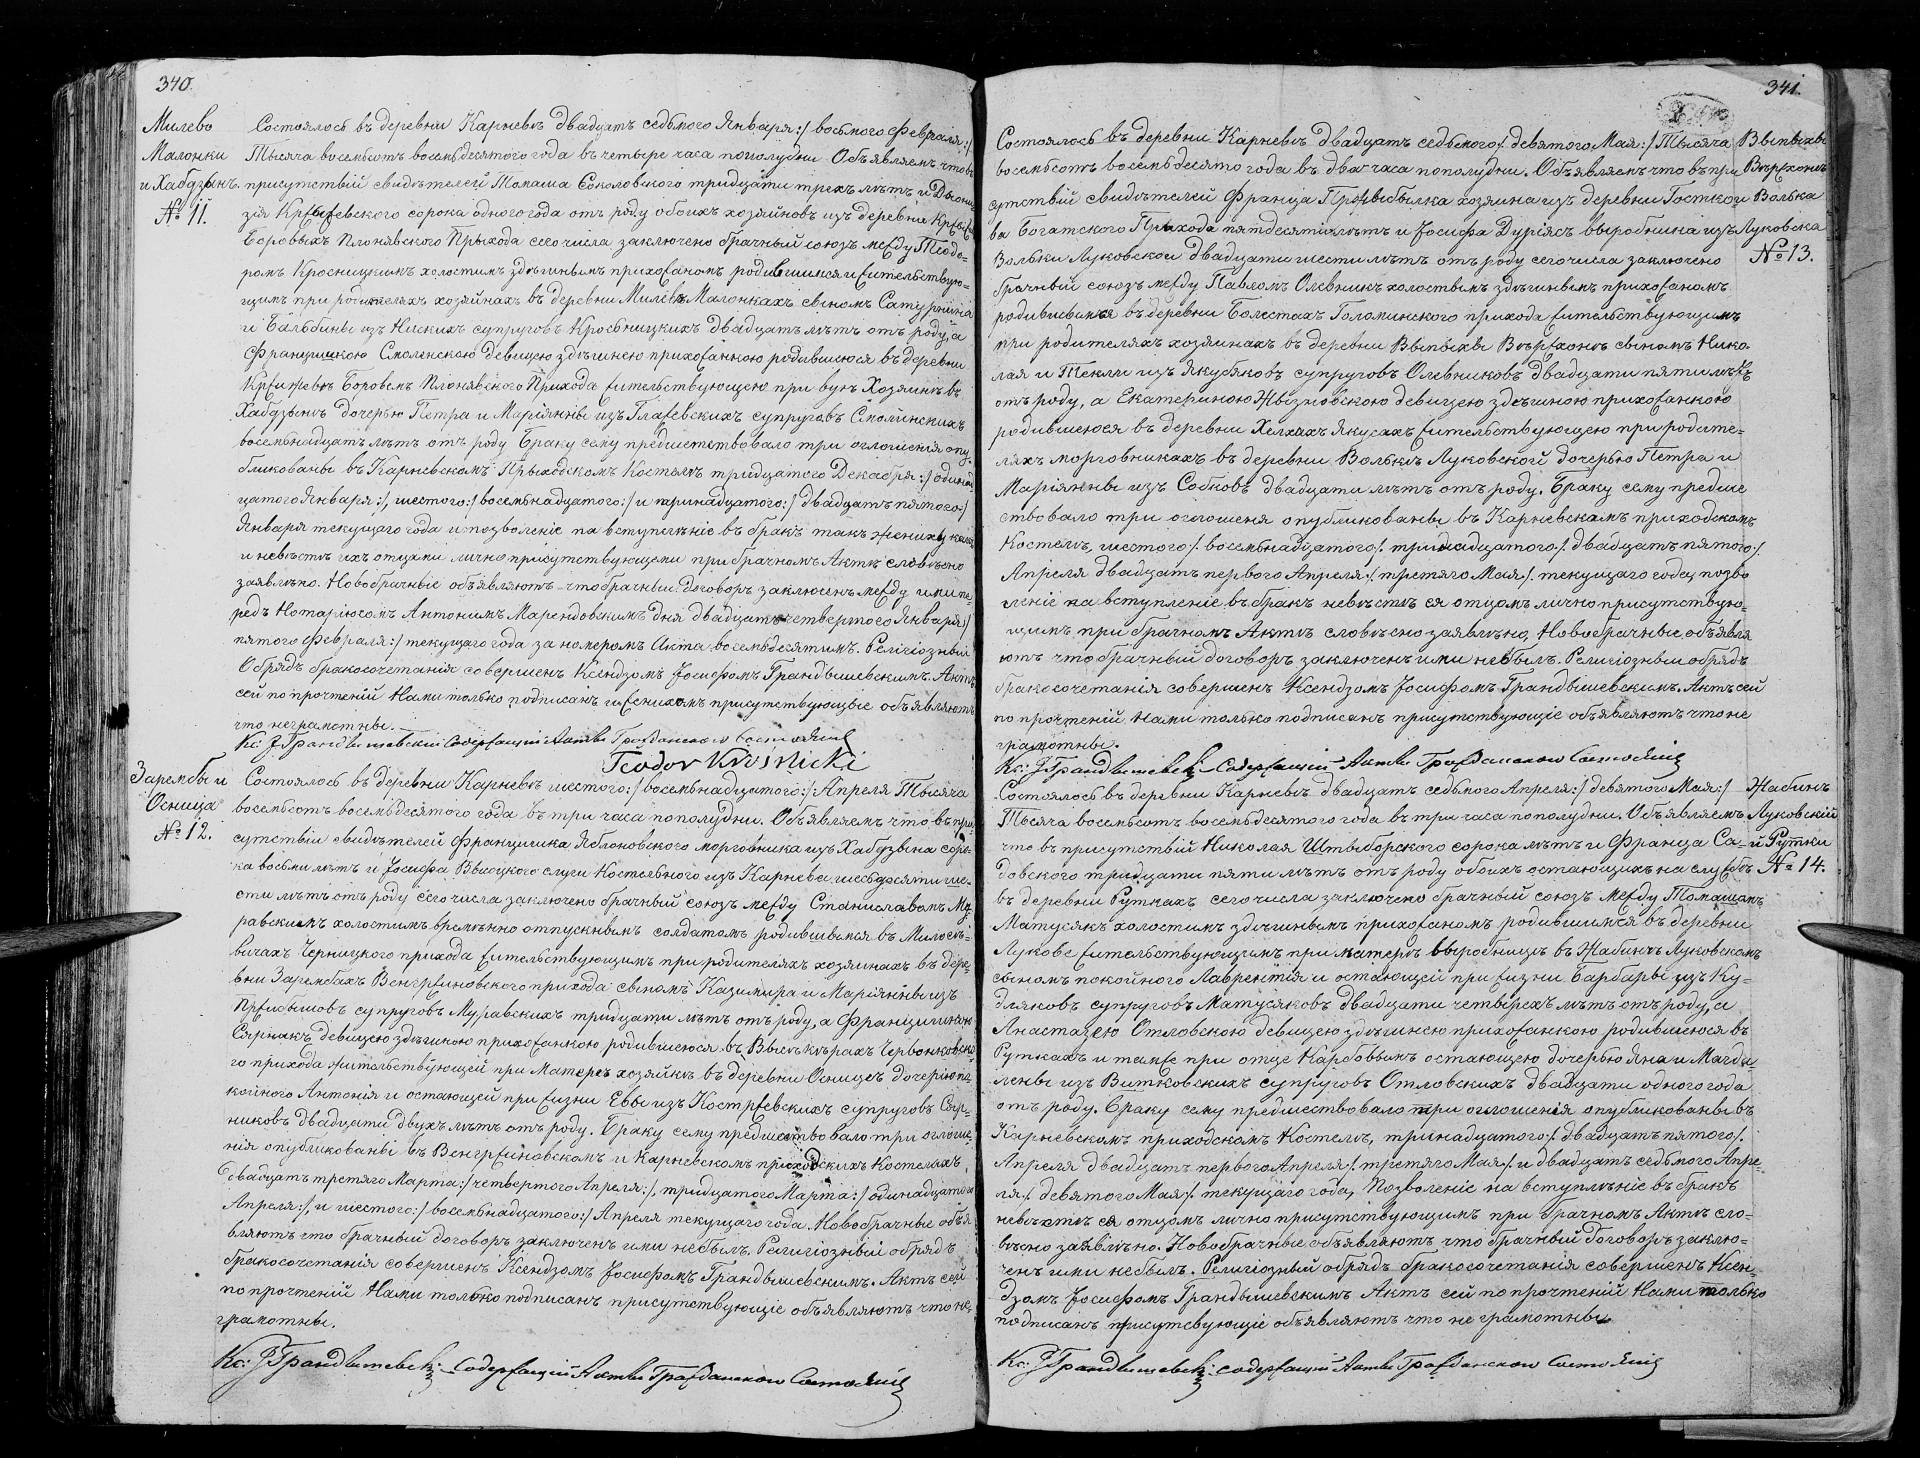 340.
Милево
Малонки
и Хабдзынъ.
№ 11.
Состоялось въ деревни Карневѣ двадцать седьмого Января:/ восьмого Февраля:/
Тысяча восемьсотъ восемьдесятого года въ четыре часа пополудни. Объявляемъ что въ
присутствій свидѣтелей Томаша Соколовского тридцати трехъ лѣтъ и Діони-
зія Кржижевского сорока одного года отъ роду обоихъ хозяиновъ изъ деревни
Боровыхъ Плонявского Прыхода сего числа заключено брачный союзъ между Теодо-
ромъ Кросницкимъ холостымъ здѣшнымъ прихожаномъ родившимся и жительствую-
щимъ при родителяхъ хозяйнахъ въ деревни Милевѣ Малонкахъ сыномъ Сатурнина
и Бальбины изъ Нискихъ супруговъ Кросницкихъ двадцать лѣтъ отъ роду, а
Францишкою Смоленскою девицею здѣшнею прихожанкою родившеюся въ деревни
Боровемъ Плонявского Прихода жительствующею при вуѣ Хозяинѣ въ
Хабдзынѣ дочерью Петра и Маріянны изъ Глажевскихъ супруговъ Смолинскихъ
восемьнадцать лѣтъ отъ роду Браку сему предшествовало три оглошенія опу-
бликованы въ Карневскомъ Прыходскомъ Костелѣ тридцатого Декабря:/ одинад-
цатого Января:/, шестого:/ восемьнадцатого:/ и тринадцатого:/ двадцать пятого:/
Января текущаго года и позволеніе на вступленіе въ бракъ такъ жениху какъ
и невѣстѣ ихъ отцами лично присутствующеми при брачномъ Актѣ словѣсно
заявлѣно. Новобрачные объявляютъ что брачный договоръ заключенъ между ими пе-
редъ Нотаріюсомъ Антонимъ Марендовскимъ дня двадцать четвертого Января:/
пятого Февраля:/ текущаго года за номеромъ Акта восемьдесятимъ. Религіозный
Обрядъ бракосочетанія совершенъ Ксендзомъ Іосифомъ Грандышевскимъ. Актъ
сей по прочтеній Нами только подписанъ и женихомъ присутствующіе объявляютъ
что неграмотны.
Кс: І Грандышевскій Содержащій Акты Гражданского Состоянія
Teodor Krośnicki
Зарембы и
Осница
№ 12.
Состоялось въ деревни Карневѣ шестого:/ восемьнадцатого:/ Апреля Тысяча
восемьсотъ восемьдесятого года въ три часа пополудни. Объявляемъ что въ при-
сутствіи свидѣтелей Францишка Яблоновского морговника изъ Хабдзына соро-
ка восьми лѣтъ и Іосифа Высоцкого слуги Костельного изъ Карнева шесьдесяти ше-
сти лѣтъ отъ роду сего числа заключено брачный союзъ между Станиславомъ Му-
равскимъ холостымъ времѣнно отпускнымъ солдатомъ родившымся въ Милосѣ-
вичахъ Черницкого прихода жительствующимъ при родителяхъ хозяинахъ въ дере-
вни Зарембахъ Венгржиновского прихода сыномъ Казимира и Маріянны изъ
супруговъ Муравскихъ тридцати лѣтъ отъ роду, а Францишкою
Сярнакъ девицею здѣшною прихожанкою родившеюся въ Червонковско-
го прихода жительствующей при Матерѣ хозяйкѣ въ деревни Осницѣ дочерію по-
койного Антонія и остающей при жизни Евы изъ Костржевскихъ супруговъ Сяр-
никовъ двадцати двухъ лѣтъ отъ роду. Браку сему предшествовало три оглоше-
нія опубликованы въ Венгржиновскомъ и Карневскомъ приходскихъ Костелахъ,
двадцать третяго Марта:/ четвертого Апреля:/, тридцатого Марта:/ одинадцатого
Апреля:/, и шестого:/ восемьнадцатого:/ Апреля текущаго года. Новобрачные объя-
вляютъ что брачный договоръ заключенъ ими небылъ. Религіозный обрядъ
бракосочетанія совершенъ Ксендзомъ Іосифомъ Грандышевскимъ. Актъ сей
по прочтеній Нами только подписанъ присутствующіе объявляютъ что не-
грамотны.
Кс: І Грандышевскій Содержащій Акты Гражданского Состоянія
341.
Выпыхы
Вѣржхонѣ
и Волька
Луковска
№ 13.
Состоялось въ деревни Карневѣ двадцать седьмого/. девятого Мая:/ Тысяча
восемьсотъ восемьдесято года въ два часа пополудни. Объявляемъ что въ при-
сутствій свидѣтелей Франца Пржибылка хозяина изъ деревни Госткo-
ва Богатского Прыхода пятдесяти лѣтъ и Іосифа Дуріясъ выробника изъ
Вольки Луковской двадцати шести лѣтъ отъ роду сего числа заключено
брачный союзъ между Павломъ Олевникъ холостымъ здѣшнымъ прихожаномъ
родившымся въ деревни Болестахъ Голоминского прихода жительствующимъ
при родителяхъ хозяинахъ въ деревни Выпыхы Вѣржхонѣ сыномъ Нико
лая и Теклы изъ Якубяковъ супруговъ Олевниковъ двадцати пяти лѣтъ
отъ роду, а Екатериною девицею здѣшною прихожанкою
родившеюся въ деревни Хелхахъ Якусахъ жительствующею при родите-
ляхъ морговникахъ въ деревни Волькѣ Луковской дочерью Петра и
Маріянны изъ Собковъ двадцати лѣтъ отъ роду. Браку сему предше
ствовало три оглошеня опубликованы въ Карневскомъ приходскомъ
Костелѣ, шестого/. восемьнадцатого/. тринадцатого/. двадцать пятого/.
Апреля двадцать первого Апреля:/ третяго Мая/. текущаго года, позво
леніе на вступленіе въ бракъ невѣстѣ ея отцомъ лично присутствую-
щимъ при брачномъ Актѣ словѣсно заявлѣно, Новобрачные объявля
ютъ что брачный договоръ заключенъ ими небылъ. Религіозный обрядъ
бракосочетанія совершенъ Ксендзомъ Іосифомъ Грандышевскимъ. Актъ сей
по прочтеній Нами только подписанъ присутствующіе объявляютъ что не
грамотны.
Кс: І Грандышевскій Содержащій Акты Гражданского Состоянія
Жабинъ
Луковскій
и Рутки
№ 14.
Состоялось въ деревни Карневѣ двадцать седьмого Апреля:/ девятого Мая:/
Тысяча восемьсотъ восемьдесятого года въ три часа пополудни. Объявляемъ
что въ присутствій Николая Штыборского сорока лѣтъ и Франца Са-
довского тридцати пяти лѣтъ отъ роду обоихъ остающихъ на службѣ
въ деревни Руткахъ сего числа заключено брачный союзъ между Томашомъ
Матусякъ холостымъ здѣшнымъ прихожаномъ родившимся въ деревни
Лукове жительствующымъ при матерѣ выробницѣ въ Жабинѣ Луковскомъ
сыномъ покойного Лаврентія и остающей при жизни Барбары изъ Ку-
дляковъ супруговъ Матусяковъ двадцати четырехъ лѣтъ отъ роду, а
Анастазею Отловскою девицею здѣшнею прихожанкою родившеюся въ
Руткахъ и также при отце Карбовымъ остающею дочерью Яна и Магда-
лены изъ Витковскихъ супруговъ Отловскихъ двадцати одного года
отъ роду. Браку сему предшествовало три оглошенія опубликованы въ
Карневскомъ приходскомъ Костелѣ, тринадцатого/. двадцать пятого/.
Апреля двадцать первого Апреля/. третяго Мая/. и двадцать седьмого Апре-
ля/. девятого Мая/. текущаго года, Позволеніе на вступлѣніе въ бракъ
невѣстѣ ея отцомъ лично присутствующимъ при брачномъ Актѣ сло-
вѣсно заявлѣно. Новобрачные объявляютъ что брачный договоръ заклю-
ченъ ими небылъ. Религіозный обрядъ бракосочетанія совершенъ Ксен-
дзомъ Іосифомъ Грандышевскимъ Актъ сей по прочтеній Нами только
подписанъ присутвующіе объявляютъ что не грамотны
Кс: І Грандышевскій содержащій Акты Гражданского Состоянія